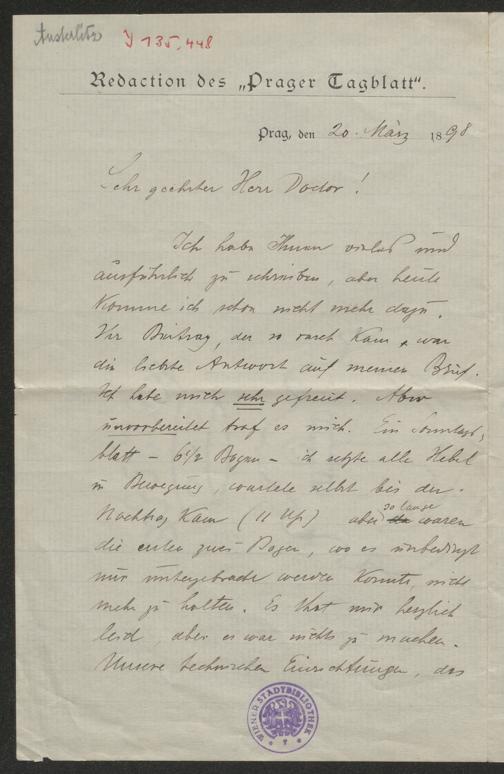 Austerlitz
J 135.448
Redaction des „Prager Tagblatt“.
Prag, den 20. März 1898
Sehr geehrter Herr Doctor!
Ich habe Ihnen vieles und
ausführlich zu schreiben, aber heute
komme ich schon nicht mehr dazu.
Ihr Beitrag, der so rasch kam, war
die liebste Antwort auf meinen Brief.
Ich habe mich sehr gefreut. Aber
unvorbereitet traf es mich. Ein Sonntags-
blatt – 6 1/2 Bogen – ich setzte alle Hebel
in Bewegung, wartete selbst bis der
Nachtrag kam (11 Uhr) aber so lange waren
die ersten zwei Bogen, wo es unbedingt
nur untergebracht werden konnte, nicht
mehr zu halten. Es that mir herzlich
leid, aber es war nichts zu machen.
Unsere technischen Einrichtungen, das
WIENER STADTBIBLIOTHEK